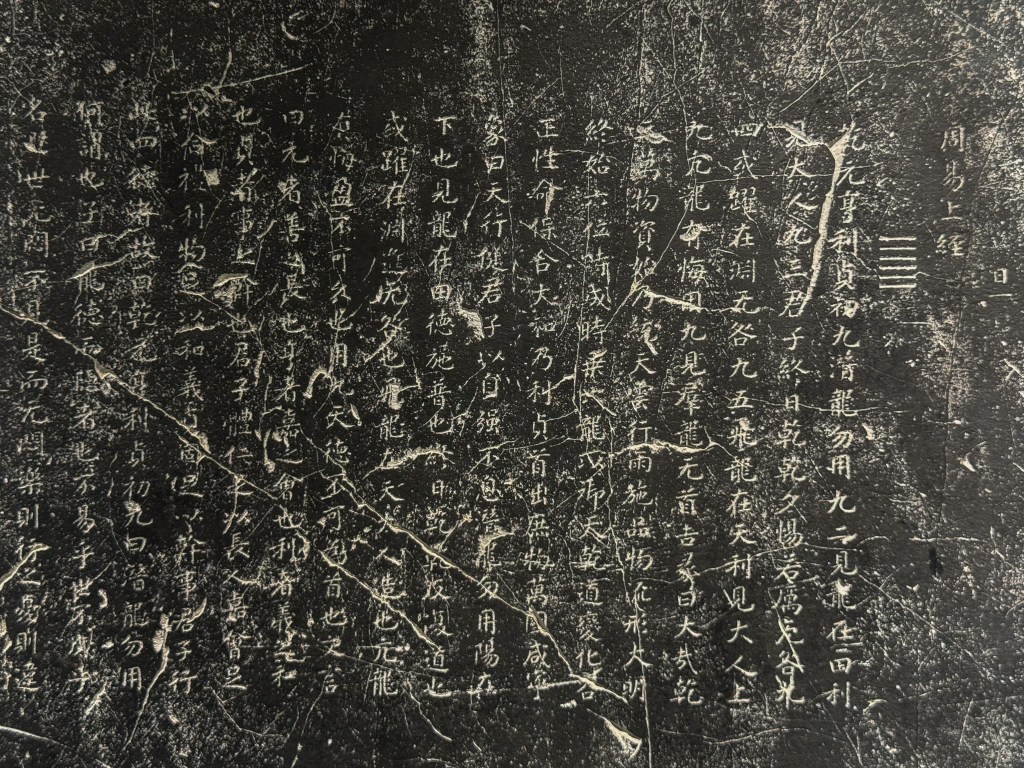 周易上經
乾元亨利貞初九潛龍勿用九二見龍在田利
見大人九三君子終日乾乾夕惕若厲无咎九
四或躍在淵无咎九五飛龍在天利見大人上
九亢龍有悔用九見羣龍无首吉彖曰大哉乾
元萬物資始乃統天雲行雨施品物流形大明
終始六位時成時乘六龍以御天乾道變化各
正性命保合大和乃利貞首出庶物萬國咸寧
象曰天行健君子以自强不息潛龍勿用陽在
下也見龍在田德施普也終日乾乾反復道也
或躍在淵進无咎也飛龍在天大人造也亢龍
有悔盈不可久也用九天德不可為首也文言
曰元者善之長也亨者嘉之會也利者義之和
也貞者事之幹也君子體仁足以長人嘉會足
以合禮利物足以和義貞固足以幹事君子行
此四德者故曰乾元亨利貞初九曰潛龍勿用
何謂也子曰龍德而隱者也不易乎世不成乎
名遯世无悶不見是而无悶樂則行之憂則違